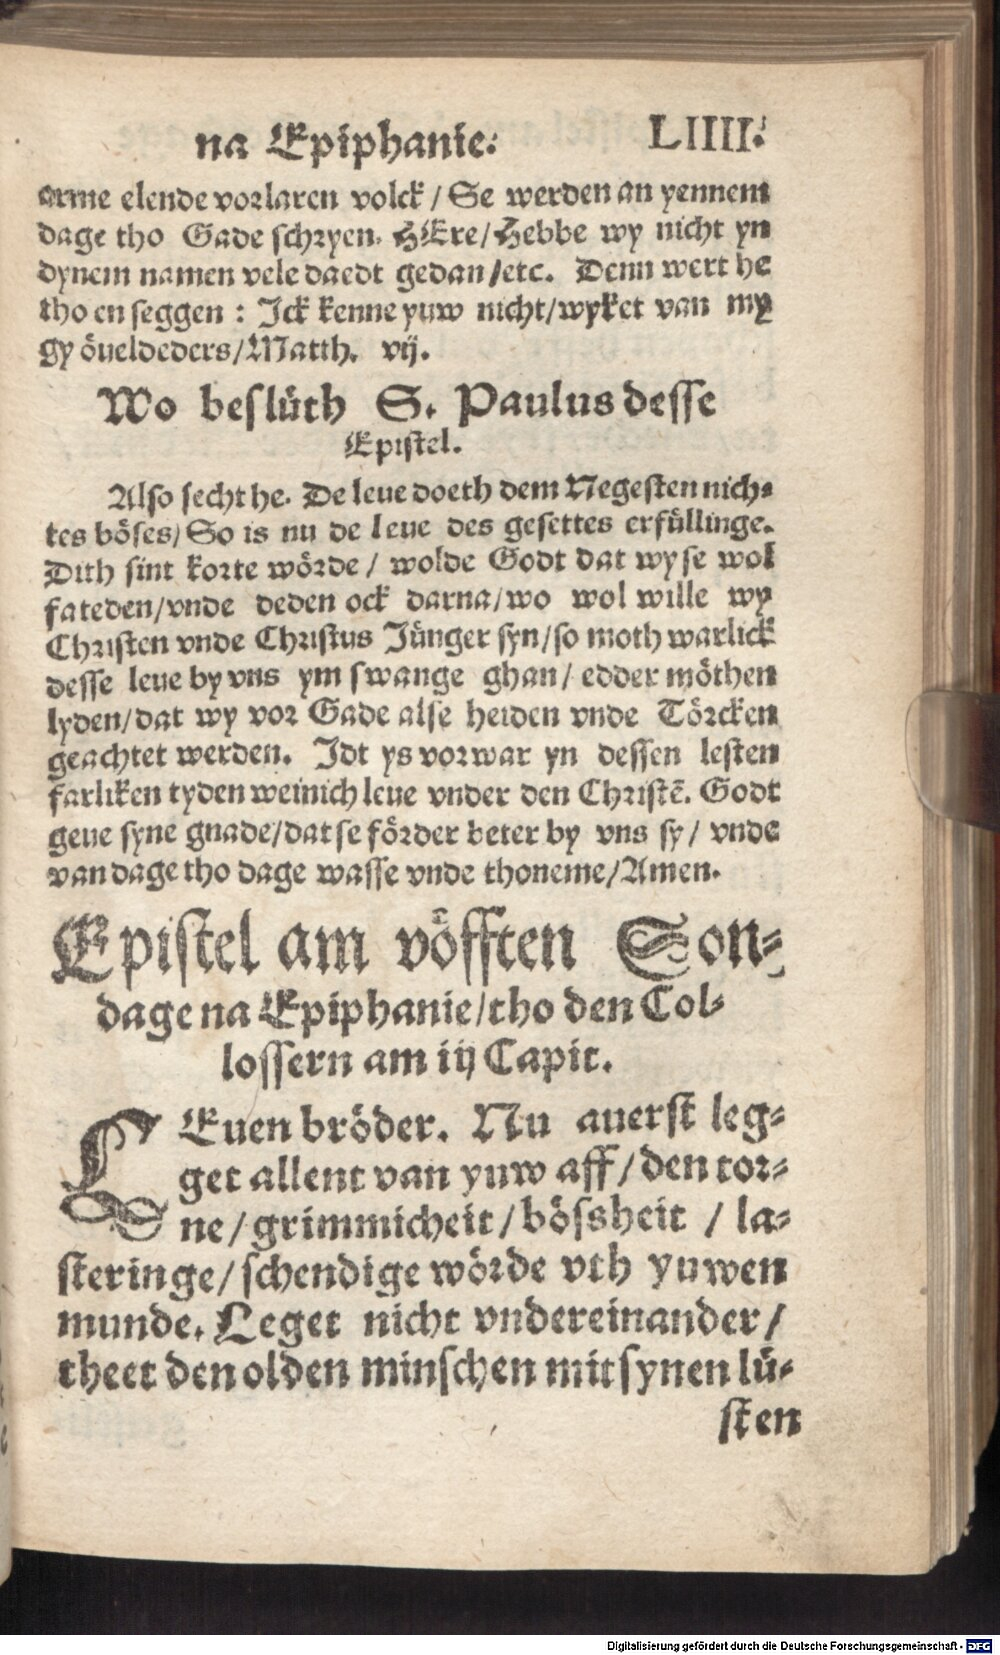 na Epiphanie. LIIII.
arme elende vorlaren volck / Se werden an yennem
dage tho Gade schryen. HEre/Hebbe wy nicht yn
dynem namen vele daedt gedan/etc. Denn wert he
tho en seggen : Ick kenne yuw nicht/wyket van my
gy öueldeders/Matth. vij.
Wo beslüth S. Paulus desse
Epistel.
Also secht he. De leue doeth dem Negesten nich-
tes böses/So is nu de leue des gesettes erfüllinge.
Dith sint korte wörde / wolde Godt dat wy se wol
fateden/vnde deden ock darna/wo wol wille wy
Christen vnde Christus Jünger syn/so moth warlick
desse leue by vns ym swange ghan/ edder möthen
lyden/dat wy vor Gade alse heiden vnde Törcken
geachtet werden. Idt ys vorwar yn dessen lesten
farliken tyden weinich leue vnder den Christē. Godt
geue syne gnade/dat se förder beter by vns sy/ vnde
van dage tho dage wasse vnde thoneme/Amen.
Epistel am vöfften Son-
dage na Epiphanie/tho den Col-
lossern am iij Capit.
LEuen bröder. Nu auerst leg-
get allent van yuw aff/den tor-
ne/grimmicheit/bössheit / la-
steringe/schendige wörde vth yuwen
munde. Leget nicht vndereinander/
theet den olden minschen mit synen lü-
sten
Digitalisierung gefördert durch die Deutsche Forschungsgemeinschaft - DFG